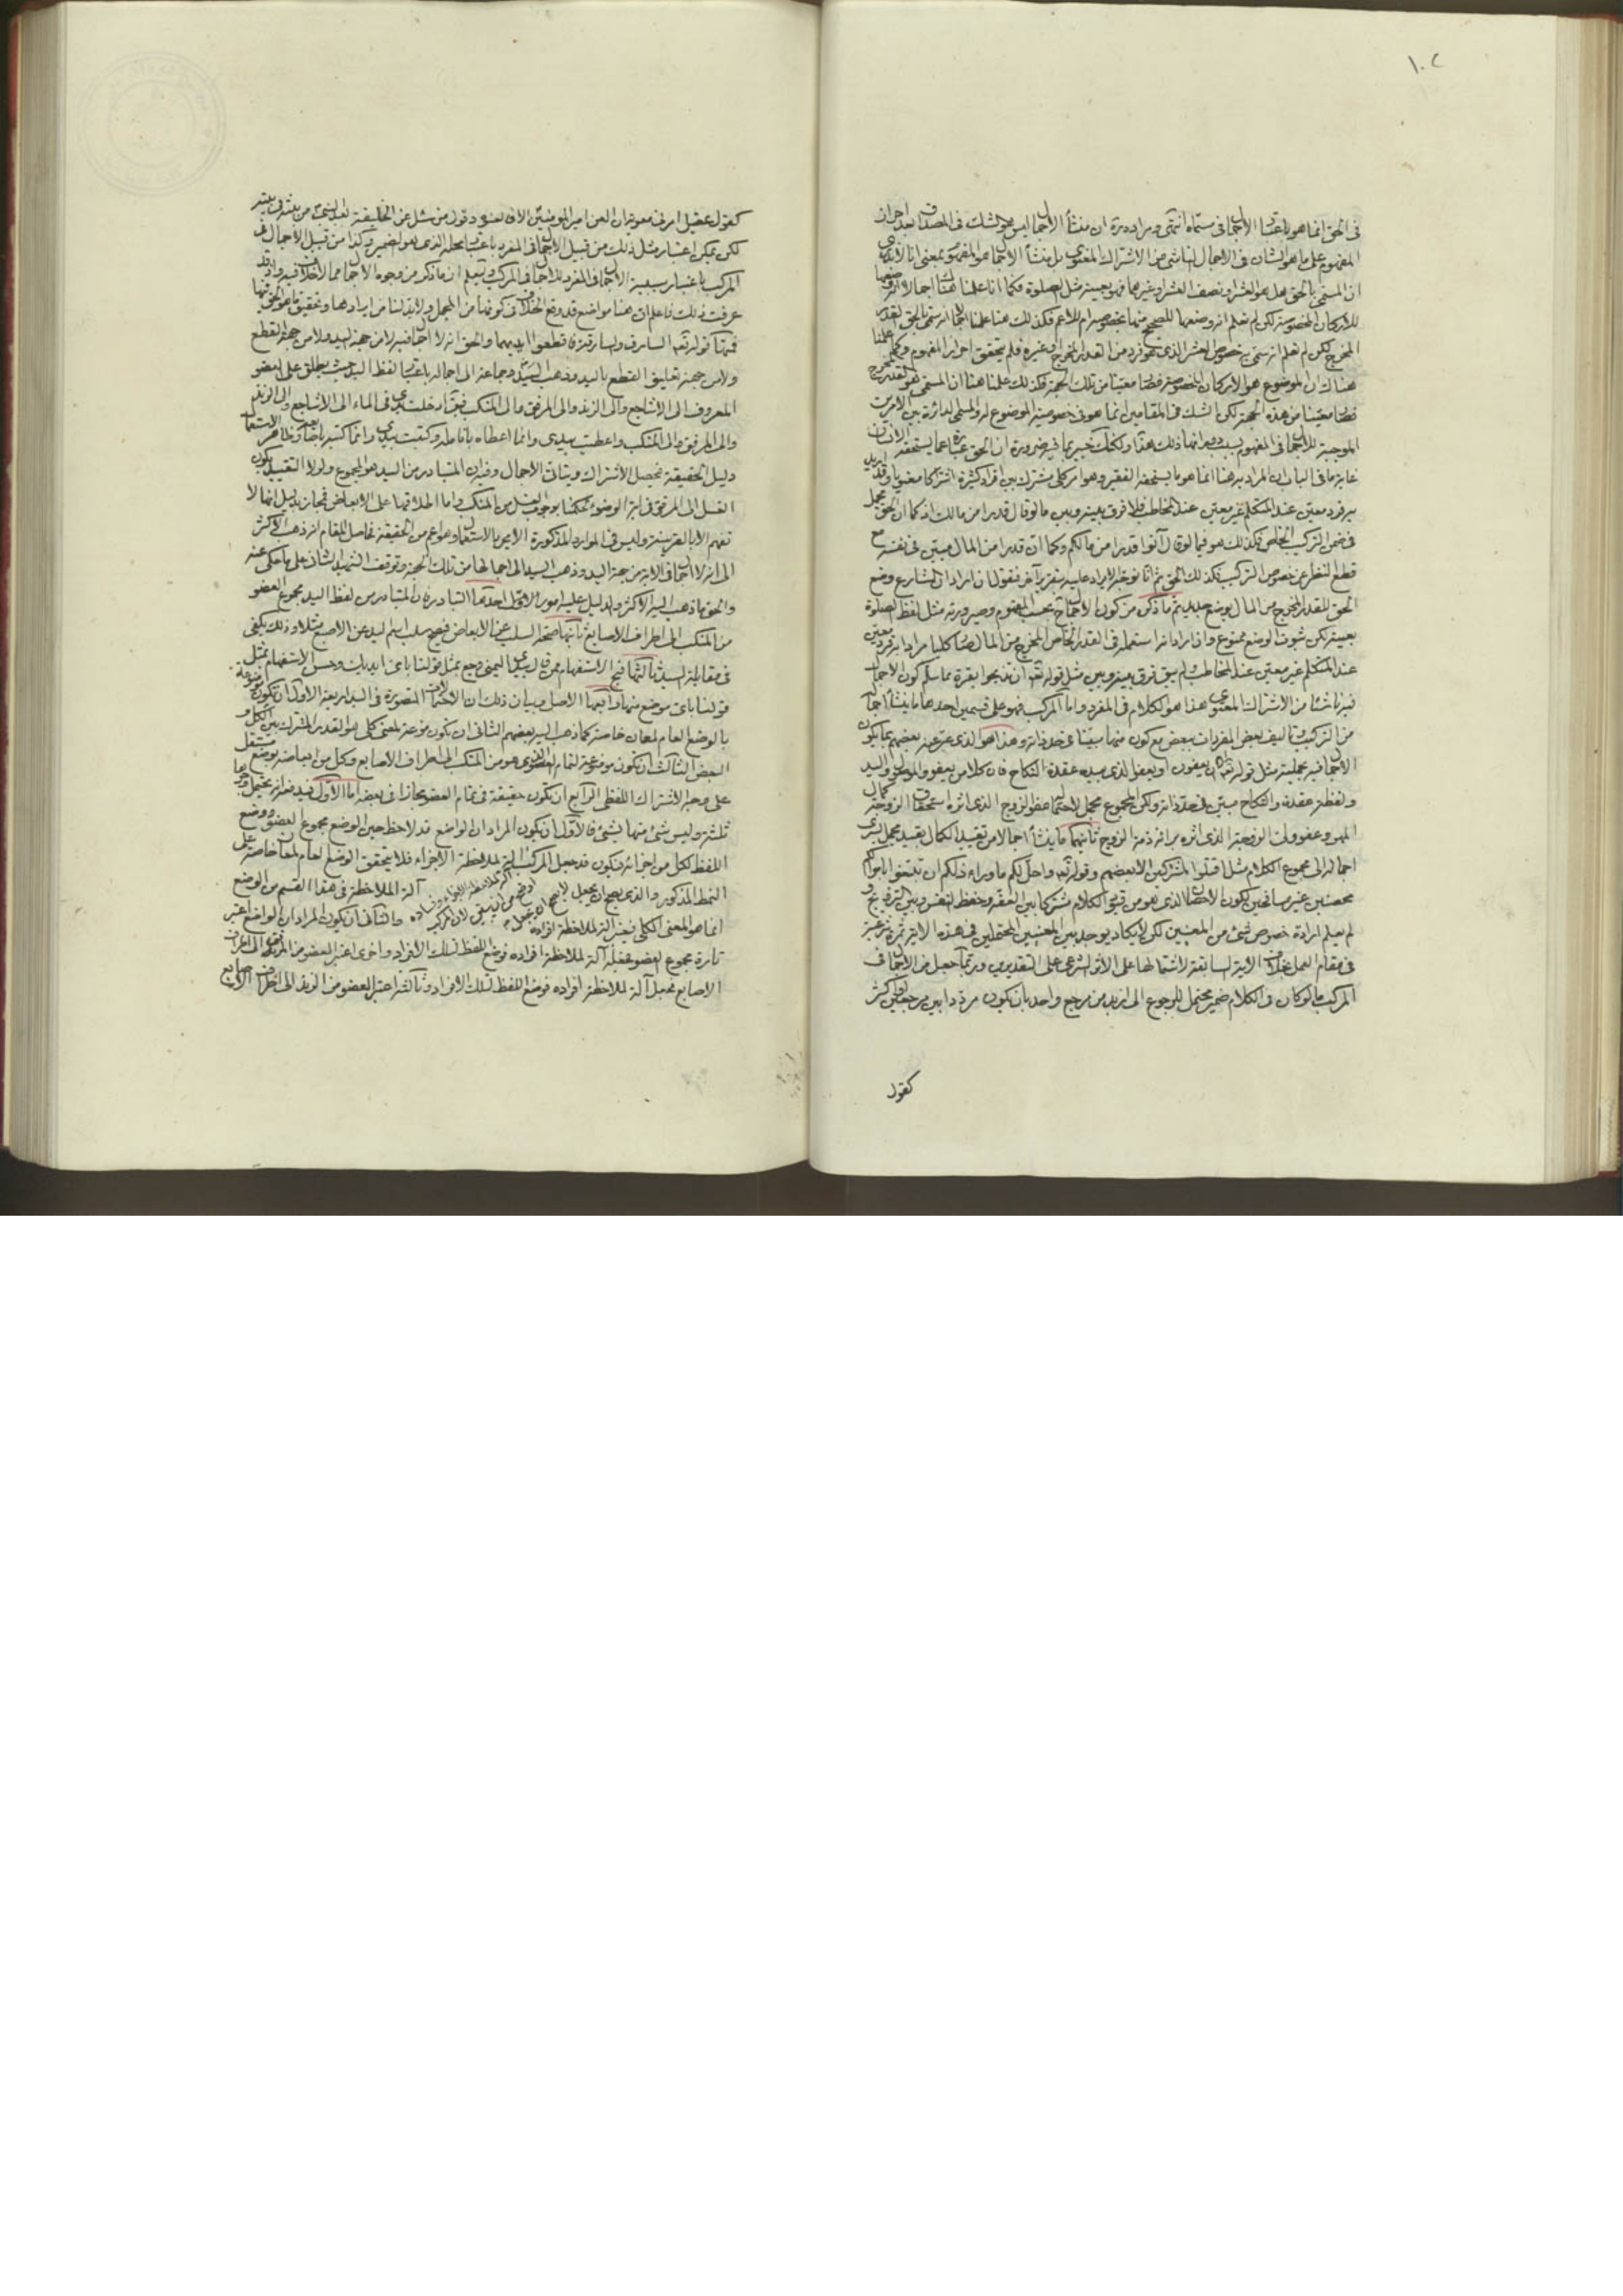 ١٠٢
في الحق انما هو باعتبار الاجمال في مسماه انتهى ومراده ره ان منشأ الاجمال ليس هو الشك في المصداق بعد احراز
المفهوم على ما هو الشأن في الاجمال الناشي من الاشتراك المعنوي بل منشأ الاجمال هو المفهوم بمعنى انا لا ندري
ان المسمى بالحق هل هو العشر او نصف العشر او غيرهما فهو بعينه مثل الصلوة فكما انا علمنا هناك اجمالا
للاركان المخصوصة لكن لم نعلم انه وضعها للصحيح منها بخصوصه ام للاعم فكذلك هنا علمنا اجمالا انه سمى بالحق القدر
المخرج لكن لم نعلم انه سمى به خصوص العشر الذي هو فرد من القدر المخرج او غيره فلم يتحقق احراز المفهوم وكما علمنا
هناك ان الموضوع هو الاركان المخصوصة فصار معينا من تلك الجهة فكذلك علمنا هنا ان المسمى هو القدر المخرج
فصار معينا من هذه الجهة لكن الشك في المقامين انما هو في خصوصية الموضوع له والمسمى الدائرة بين الامرين
الموجبة للاجمال في المفهوم بسبب دورانها ذلك هذا ولكنك خبير بما فيه ضرورة ان الحق عبارة عما يستحقه الانسان
غاية ما في الباب ان المراد به هنا انما هو ما يستحقه الفقير وهو امر كلي مشترك بين افراد كثيرة اشتراكا معنويا وقد اريد
به فرد معين عند المتكلم غير معين عند المخاطب فلا فرق بينه وبين ما لو قال قدرا من مالك اذ كما ان الحق مجمل
في ضمن التركيب الخاص فكذلك هو فيما لو قال آتوا قدرا من مالكم وكما ان قدرا من المال مبين في نفسه مع
قطع النظر عن خصوص التركيب فكذلك الحق ثم انا نوجه الايراد عليه بتقرير آخر فنقول ان اراد ان الشارع وضع
الحق للقدر المخرج من المال بوضع جديد تم ما ذكره من كون الاجمال بحسب المفهوم وصيرورته مثل لفظ الصلوة
بعينه لكن ثبوت الوضع ممنوع وان اراد انه استعمله في القدر الخاص المخرج من المال صار كليا مرادا به فرد معين
عند المتكلم غير معين عند المخاطب ولم يبق فرق بينه وبين مثل قوله تعالى ان تذبحوا بقرة مما سلم كون الاجمال
فيه ناشئا من الاشتراك المعنوي هذا هو الكلام في المفرد واما المركب فهو على قسمين احدهما ما ينشأ اجماله
من التركيب وتاليف بعض المفردات ببعض مع كون منهما مبينا في حد ذاته وهذا هو الذي عبر عنه بعضهم بما يكون
الاجمال فيه بجملته مثل قوله تعالى الا ان يعفون او يعفو الذي بيده عقدة النكاح فان كلا من يعفو والموصول واليد
ولفظة عقدة والنكاح مبين في حد ذاته ولكن المجموع مجمل لاحتمال عفو الزوج الذي اثره استحقاق الزوجة كمال
المهر وعفو ولي الزوجة الذي اثره براءة ذمة الزوج ثانيهما ما ينشأ اجماله من تقييد الكمال بقيد مجمل يسري
اجماله الى مجموع الكلام مثل اقتلوا المشركين الا بعضهم وقوله تعالى واحل لكم ما وراء ذلكم ان تبتغوا باموالكم
محصنين غير مسافحين لكون الاحصان الذي هو من قيود الكلام مشتركا بين العفة وحفظ النفس وبين التزويج و
لم يعلم ارادة خصوص شيء من المعنيين لكن لا يكاد يوجد بين المعنيين المحتملين في هذه الاية ثمرة شرعية
في مقام العمل بخلاف الاية السابقة لاشتمالها على الاثر الشرعي على التقديرين وربما جعل من الاجمال في
المركب ما لو كان في الكلام ضمير محتمل للرجوع الى ازيد من مرجع واحد بان يكون مردد ابين مرجعين او اكثر
كقول
كقول عقيل امرني معوية ان العن امير المومنين الا فالعنوه وقول من سئل عن الخليفة بعد النبي من بنته في بيته
لكن يمكن اعتبار مثل ذلك من قبيل الاجمال في المفرد باعتبار محله الذي هو الضمير وكذا من قبيل الاجمال في
المركب باعتبار سببية الاجمال في المفرد للاجمال في المركب وليعلم ان ما ذكر من وجوه الاجمال مما لا خلاف فيه واذ قد
عرفت ذلك فاعلم ان هنا مواضع قد وقع الخلاف في كونها من المجمل ولا بد لنا من ايرادها وتحقيق ما هو الحق فيها
فمنها قوله تعالى السارق والسارقة فاقطعوا ايديهما والحق انه لا اجمال فيه لا من جهة اليد ولا من جهة القطع
ولا من جهة تعليق القطع باليد وذهب السيد وجماعة الى اجماله باعتبار لفظ اليد حيث يطلق على العضو
المعروف الى الاشاجع والى الزند والى المرفق والى المنكب فيقال ادخلت يدي في الماء الى الاشاجع والى الزند
والى المرفق والى المنكب واعطيت بيدي وانما اعطاه بانامله وكتبت بيدي وانما كتبه باصابعه وظاهر الاستعمال
دليل الحقيقة فيحصل الاشتراك ويتأتى الاجمال وفيه ان المتبادر من اليد هو المجموع ولولا التقييد بكون
الغسل الى المرفق في اية الوضوء لحكمنا بوجوب الغسل من المنكب واما اطلاقها على الابعاض فمجاز بدليل انها لا
تفهم الا بالقرينة وليس في الموارد المذكورة الا مجرد الاستعمال وهو اعم من الحقيقة فحاصل المقام انه ذهب الاكثر
الى انه لا اجمال في الاية من جهة اليد وذهب السيد الى اجمالها من تلك الجهة وتوقف الشهيد الثاني على ما حكى عنه
والحق ما ذهب اليه الاكثر والدليل عليه امور الاول احدها التبادر فان المتبادر من لفظ اليد مجموع العضو
من المنكب الى اطراف الاصابع ثانيها صحة السلب عن الابعاض فيصح سلب اسم اليد عن الاصبع مثلا وذلك يكفي
في مقابلة السيد ثالثها قبح الاستفهام ممن قال بيدي اليمنى وجع بمثل قولنا باي ايديك وحسن الاستفهام بمثل
قولنا باي موضع منها رابعها الاصل وبيان ذلك ان الاحتمالات المتصورة في اليد اربعة الاول ان تكون موضوعة
بالوضع العام لمعان خاصة كما ذهب اليه بعضهم الثاني ان يكون موضوعة لمعنى كلي هو القدر المشترك بين الكل و
البعض الثالث ان تكون موضوعة لتمام العضو الذي هو من المنكب الى اطراف الاصابع وكل من ابعاضه بوضع مستقل
على وجه الاشتراك اللفظي الرابع ان يكون حقيقة في تمام العضو مجازا في بعضه اما الاول ففيه انه يحتمل وجوها
ثلثة وليس شئ منها بشئ فالاول ان يكون المراد ان الواضع قد لاحظ حين الوضع مجموع العضو ووضع
اللفظ لكل من اجزائه فيكون قد جعل المركب آلة لملاحظة الاجزاء فلا يتحقق الوضع العام لمعان خاصة على
النمط المذكور والذي يصح ان يجعل آلة الملاحظة في هذا القسم من الوضع
انما هو المعنى الكلي فيعتبر آلة لملاحظة افراده والثاني ان يكون المراد ان الواضع اعتبر
تارة مجموع العضو فجعله آلة لملاحظة افراده فوضع اللفظ لتلك الافراد واخرى اعتبر العضو من المرفق الى اطراف
الاصابع فجعل آلة لملاحظة افراده فوضع اللفظ لتلك الافراد وثالثة اعتبر العضو من الزند الى اطراف الاصابع